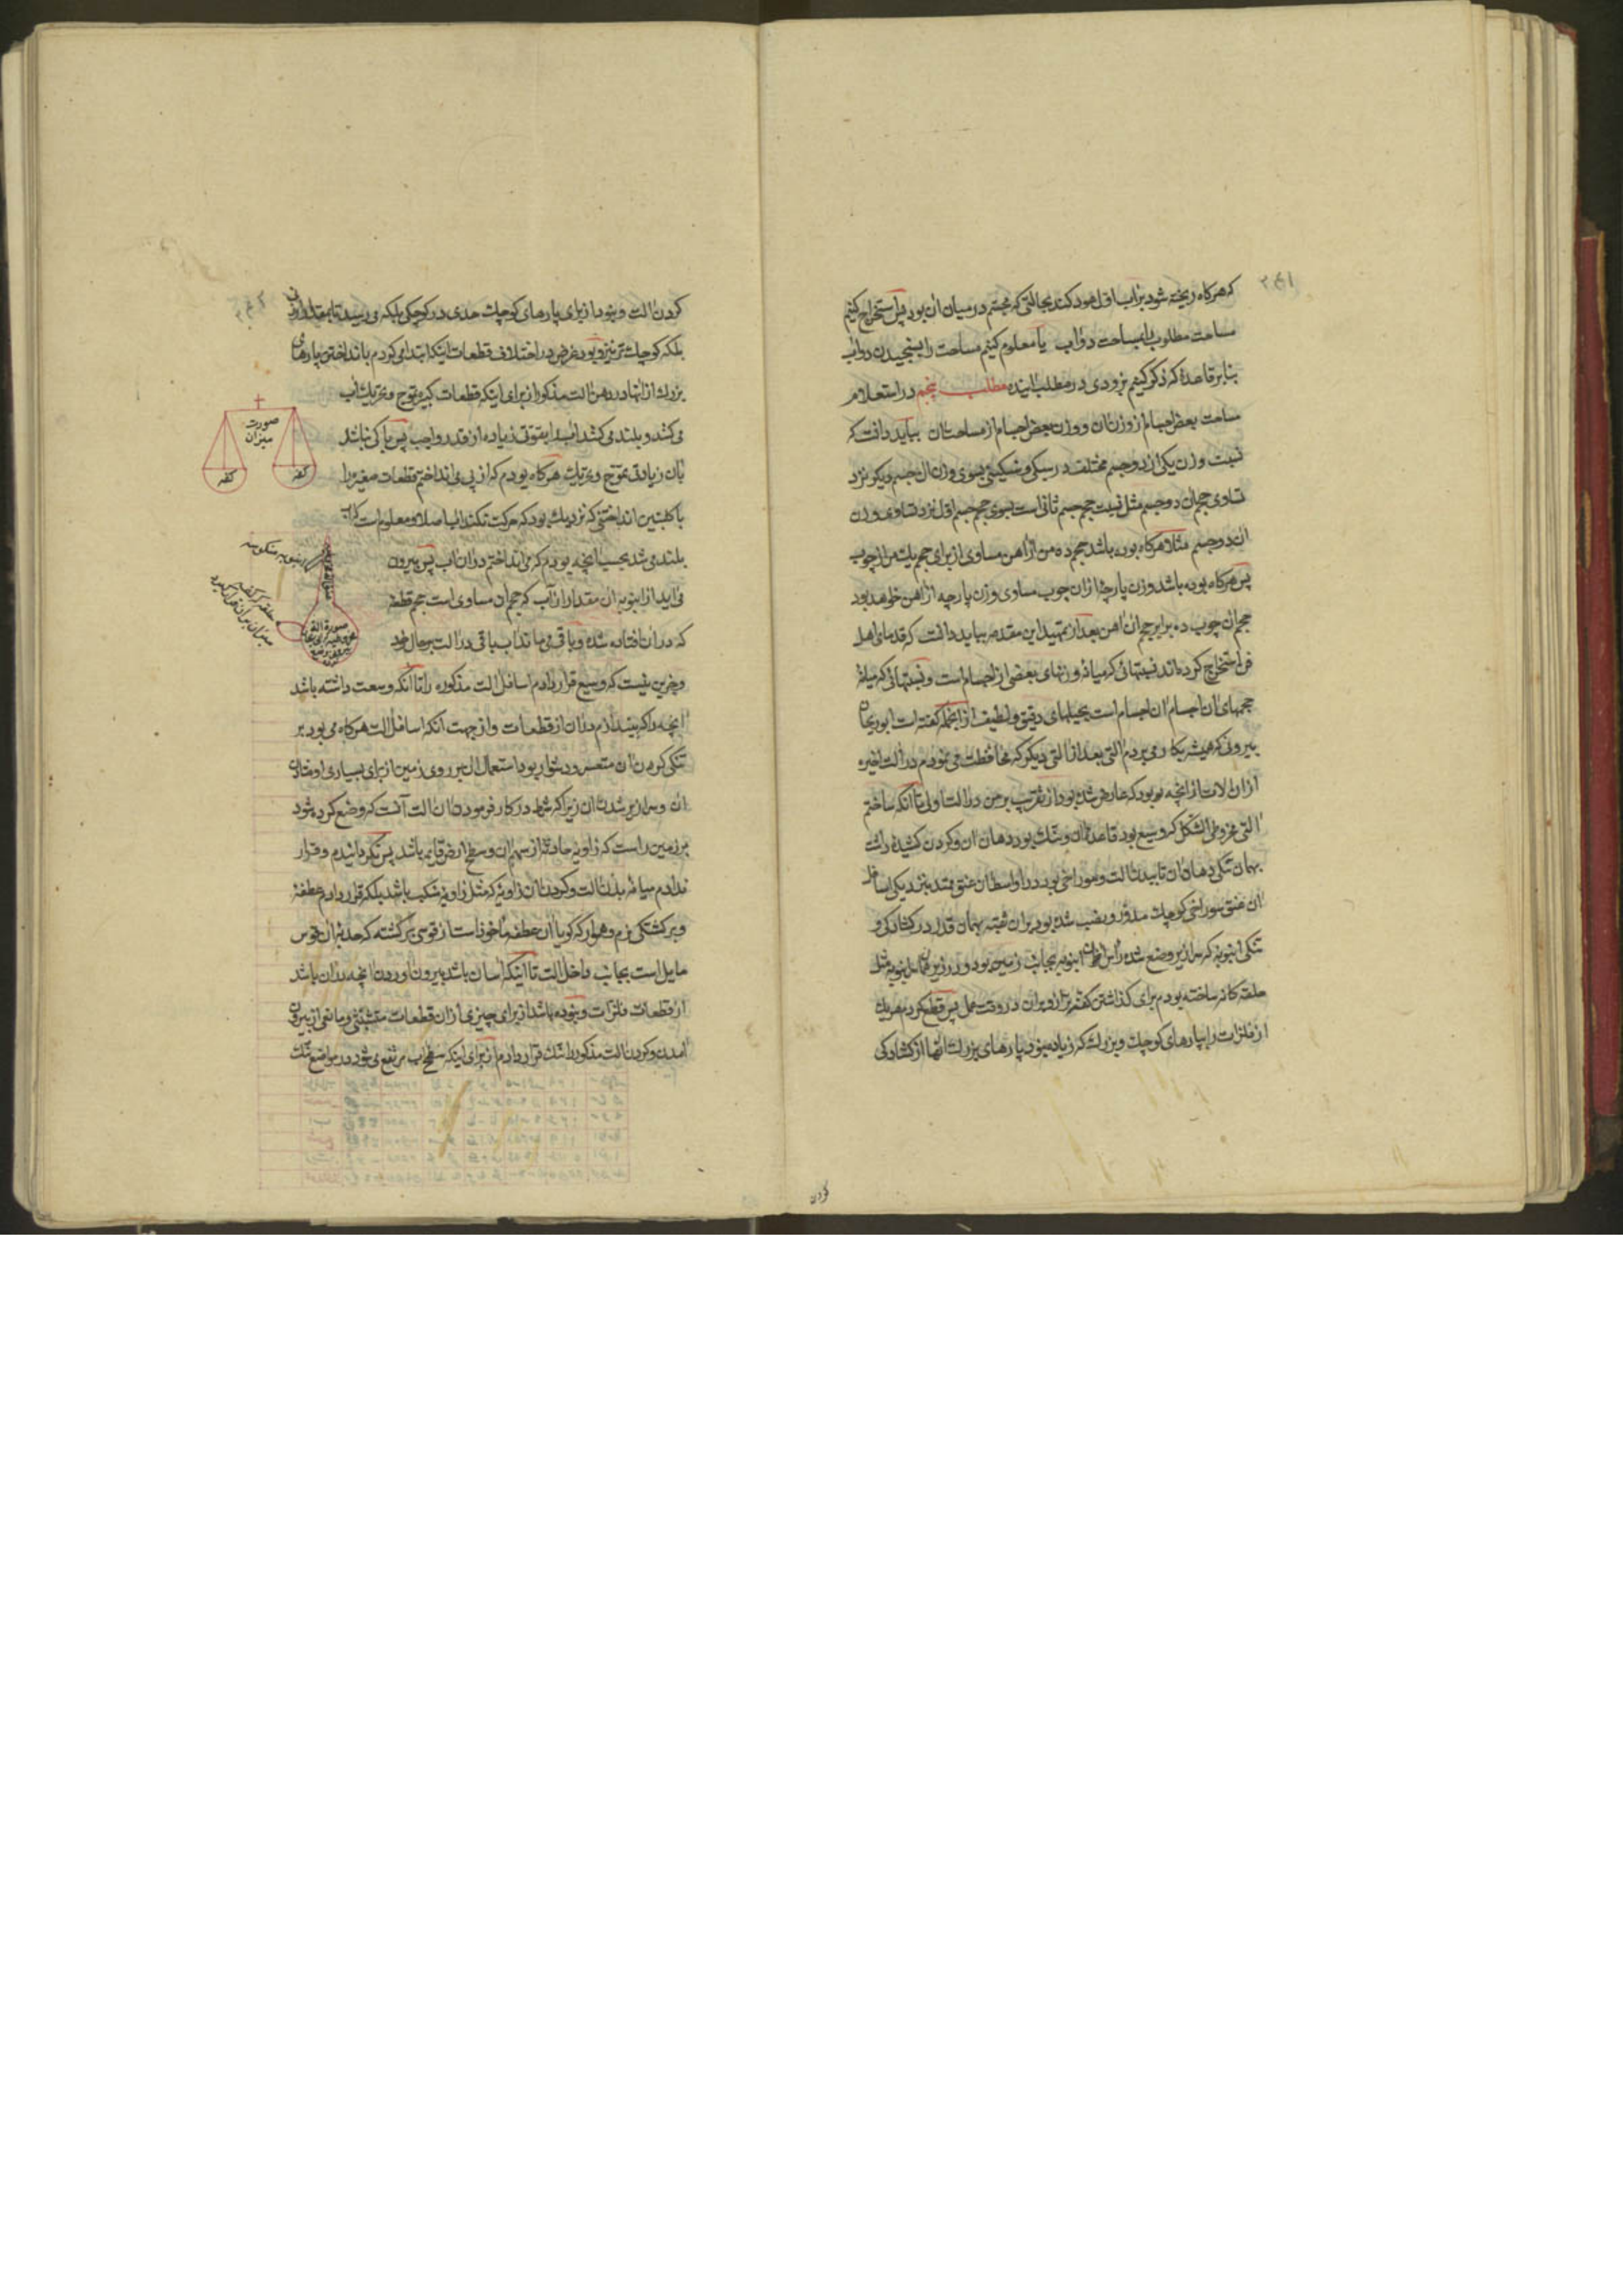 که هرکاه ریخته شود بر آب اول عود کند بحالتی که مجسم در میان آن بود پس استخراج کنیم
مساحت مطلوب را بمساحت دو آب یا معلوم کنیم مساحت را بسنجیدن دو آب
بنابر قاعدهٔ که ذکر کنیم بزودی در مطلب آینده مطلب پنجم در استعلام
مساحت بعض اجسام از وزن آن و وزن بعض اجسام از مساحت آن بباید دانست که
نسبت وزن یکی از دو جسم مختلف در سبکی و سنکینی بسوی وزن آن جسم دیکر نزد
تساوی حجم آن دو جسم مثل نسبت حجم جسم ثانی است بسوی حجم جسم اول نزد تساوی وزن
آن دو جسم مثلا هرکاه بوده باشد حجم ده من از آهن مساوی از برای حجم یک من از چوب
پس هرکاه بوده باشد وزن پارچهٔ از آن چوب مساوی وزن پارچه از آهن خواهد بود
حجم آن چوب ده برابر حجم آن آهن بعد از تمهید این مقدمه بباید دانست که قدمای اهل
فن استخراج کرده‌اند نسبتهائی که میانهٔ وزنهای بعضی از اجسام است و نسبتهائی که میانهٔ
حجمهای آن اجسام است بحیلهای دقیق و لطیف از آنجمله کفته است ابوریحان
بیرونی که همیشه بکار می‌بردم آلتی بعد از آلتی دیکر که محافظت می‌نمودم در آلت اخیره
از آن آلات از آنچه بود که عارض شده بود از تقریب بر من در آلت اولی تا آنکه ساختم
آلتی مخروطی الشکل که وسیع بود قاعدهٔ آن و تنک بود دهان آن و کردن کشیدهٔ داشت
بهمان تنکی دهان آن تا ببدن آلت و سوراخی بود در اواسط آن عنق ممتد بنزدیکی اسافل
آن عنق سوراخی کوچک مدور و نصب شده بود بر آن ثقبه بهمان قدر در کشادکی و
تنکی انبوبهٔ که سرازیر وضع شده راس آن انبوبه بجانب زمین بود و در زیر همان انبوبه مثل
حلقه کانه ساخته بودم برای کذاشتن کفهٔ ترازو بر آن در وقت عمل پس قطع کردم هر یک
از فلزات را بپارهای کوچک و بزرک که زیاده نبود پارهای بزرک آنها از کشادکی
کردن
کردن آلت و نبود از برای پارهای کوچک حدی در کوچکی بلکه می‌رسید تا بمقدار ارزنی
بلکه کوچک تر نیز و بود غرض در اختلاف قطعات اینکه ابتدا می‌کردم بانداختن پارهای
بزرک از آنها در دهن آلت مذکور از برای اینکه قطعات کبیره تموج و تحریک آب
می‌کشد و بلند می‌کشد آب را بقوتی زیاده از قدر واجب پس باکی نباشد
بآن زیادتی تموج و تحریک هرکاه بودم که از پی می‌انداختم قطعات صغیره را
با کلبتین انداختنی که نزدیک بود که حرکت نکند آب اصلا و معلوم است که آب
بلند می‌شد بحسب آنچه بودم که می‌انداختم در آن آب پس بیرون
می‌آید از انبوبه آن مقدار از آب که حجم آن مساوی است حجم قطعهٔ
که در آن افتاده شده و باقی می‌ماند آب باقی در آلت بر حال خود
و جز این نیست که وسیع قرار دادم اسافل آلت مذکوره را تا آنکه وسعت داشته باشد
آنچه را که بیندازم در آن از قطعات و از جهت آنکه اسافل آلت هرکاه می‌بود بر
تنکی کردن آن متعسر و دشوار بود استعمال آن بر روی زمین از برای بسیاری افتادن
آن و سرازیر شدن آن زیرا که شرط در کار فرمودن آن آلت آنست که وضع کرده شود
بر زمین راست که زاویه حادثه از سهم آن و سطح ارض قایمه باشد پس نکردانیدم و قرار
ندادم میانهٔ بدن آلت و کردن آن زاویهٔ که مثل زاویهٔ شکب باشد بلکه قرار دادم عطفهٔ
و برکشتکی نرم و هموار که کویا آن عطفه مأخوذ است از قوسی برکشته که حدبهٔ آن قوس
مایل است بجانب داخل آلت تا اینکه آسان باشد بیرون آوردن آنچه در آن باشد
از قطعات فلزات و نبوده باشد از برای چیزی از آن قطعات متشبثی و مانعی از بیرون
آمدن و کردن آلت مذکور را تنک قرار دادم از برای اینکه سطح آب مرتفع می‌شود در مواضع تنک
صورت
میزان
کفه
کفه
انبوبه منکوسه
حلقه که کفهٔ
میزان بر آن قرار کیرد
صورة آلة